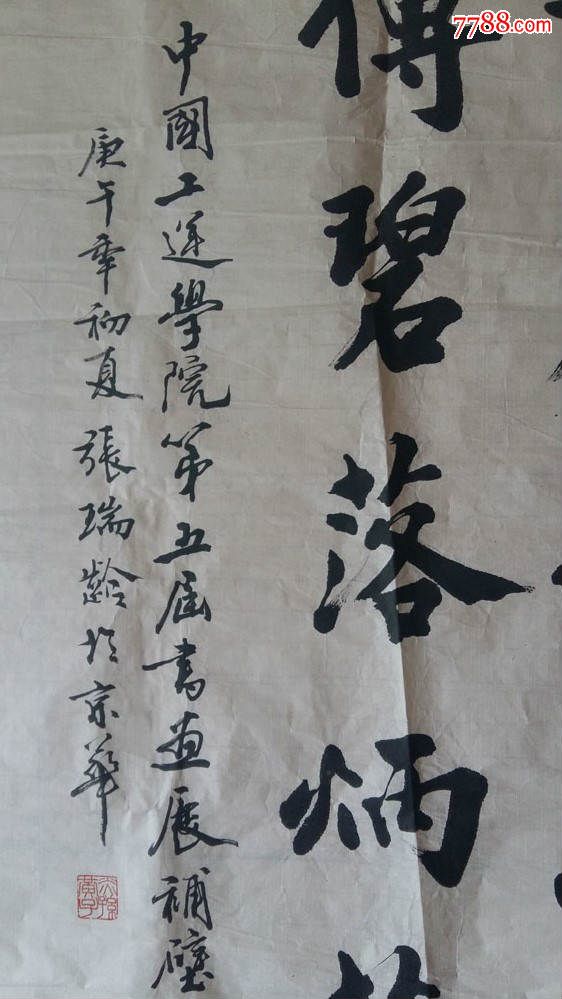 7788.com
傅碧落炳
中國工运學院第五届書画展補壁
庚午年初夏張瑞齡於京華